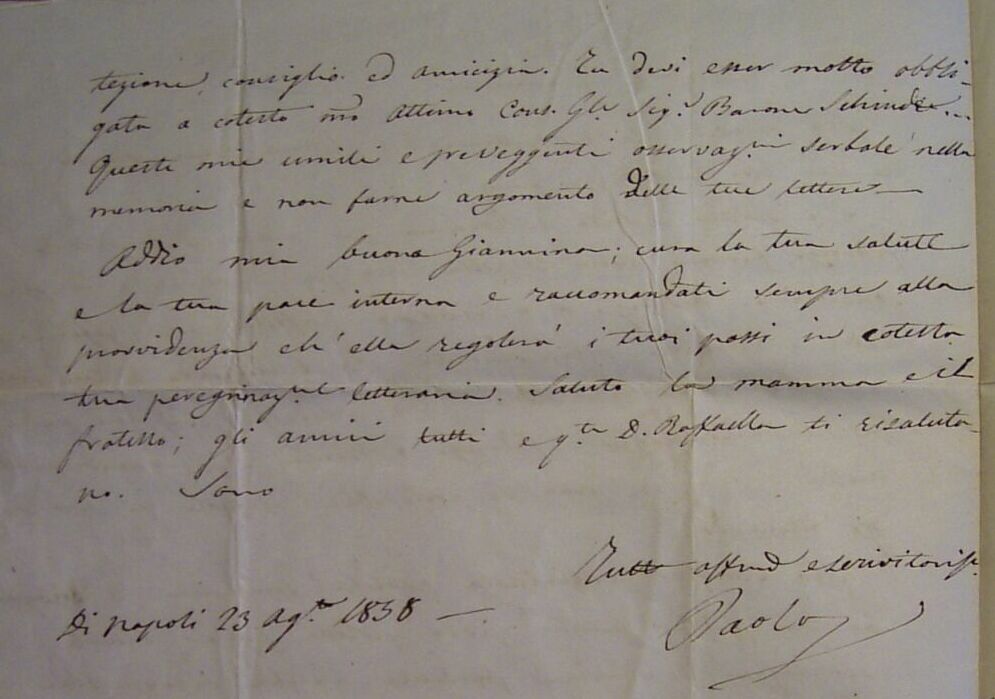 tezione, consiglio ed amicizia. Tu devi esser molto obbli-
gata a cotesto mo ottimo Cons. Gle Sig.r Barone
Queste mie umili e preveggenti osservaz.ni serbale nella
memoria e non farne argomento delle tue lettere —
Addio mia buona Giannina; cura la tua salute
e la tua pace interna e raccomandati sempre alla
provvidenza ch' ella regolerà i tuoi passi in cotesta
tua peregrinaz.ne letteraria. Saluto la mamma e il
fratello; gli amici tutti e q.ta D. Raffaella ti risaluta-
no. Sono
Tutto affmo e servitoriss.
Di Napoli 23 Ag.to 1858 —
Paolo